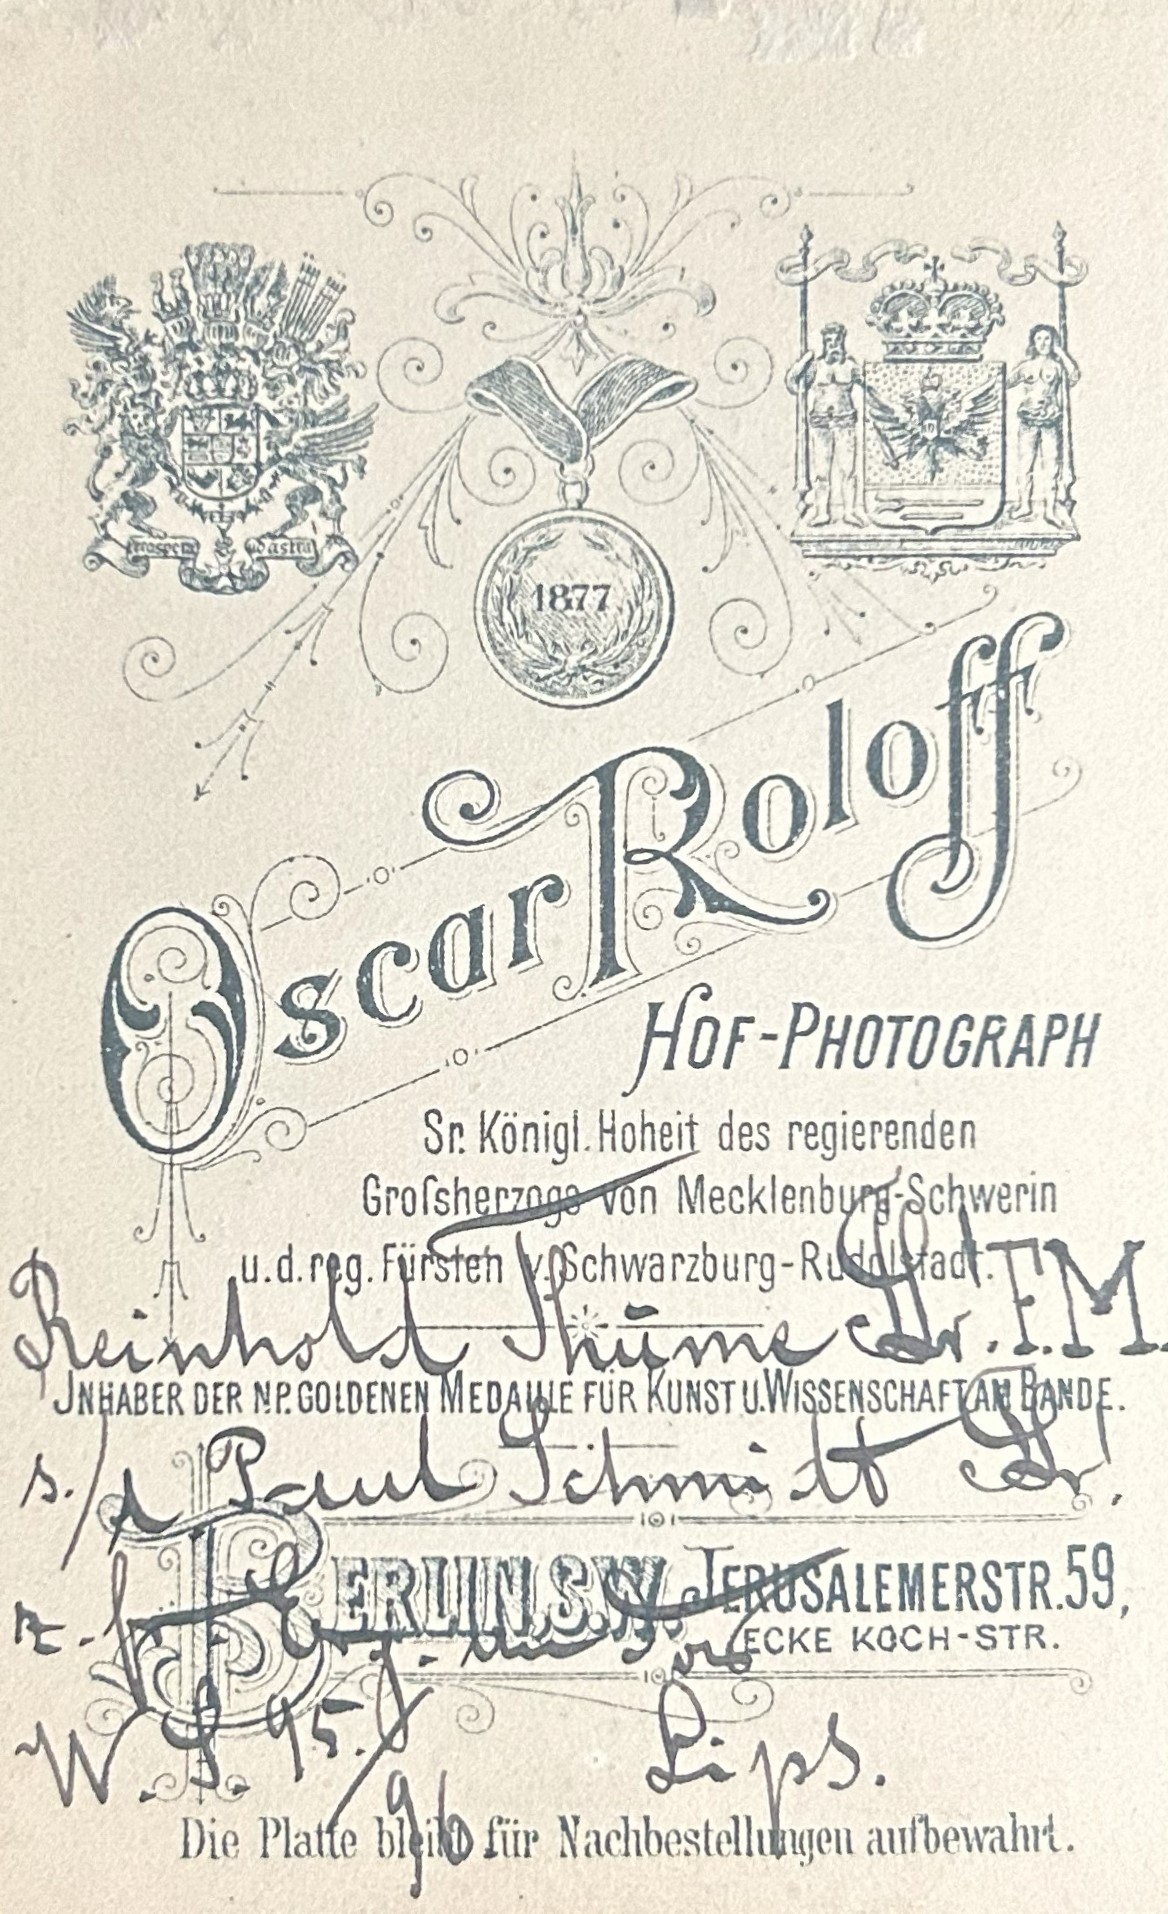 1877
Oscar Roloff
HOF-PHOTOGRAPH
Sr. Königl. Hoheit des regierenden
Groſsherzogs von Mecklenburg-Schwerin
u. d. reg. Fürsten v. Schwarzburg-Rudolstadt.
Reinhold Thüme Gr. F.M.
JNHABER DER NP. GOLDENEN MEDAILLE FÜR KUNST U. WISSENSCHAFT AM BANDE.
s./l Paul Schmidt
BERLIN. S.W. JERUSALEMERSTR. 59,
ECKE KOCH-STR.
z. f.
W. S. 95./96 Lips.
Die Platte bleibt für Nachbestellungen aufbewahrt.